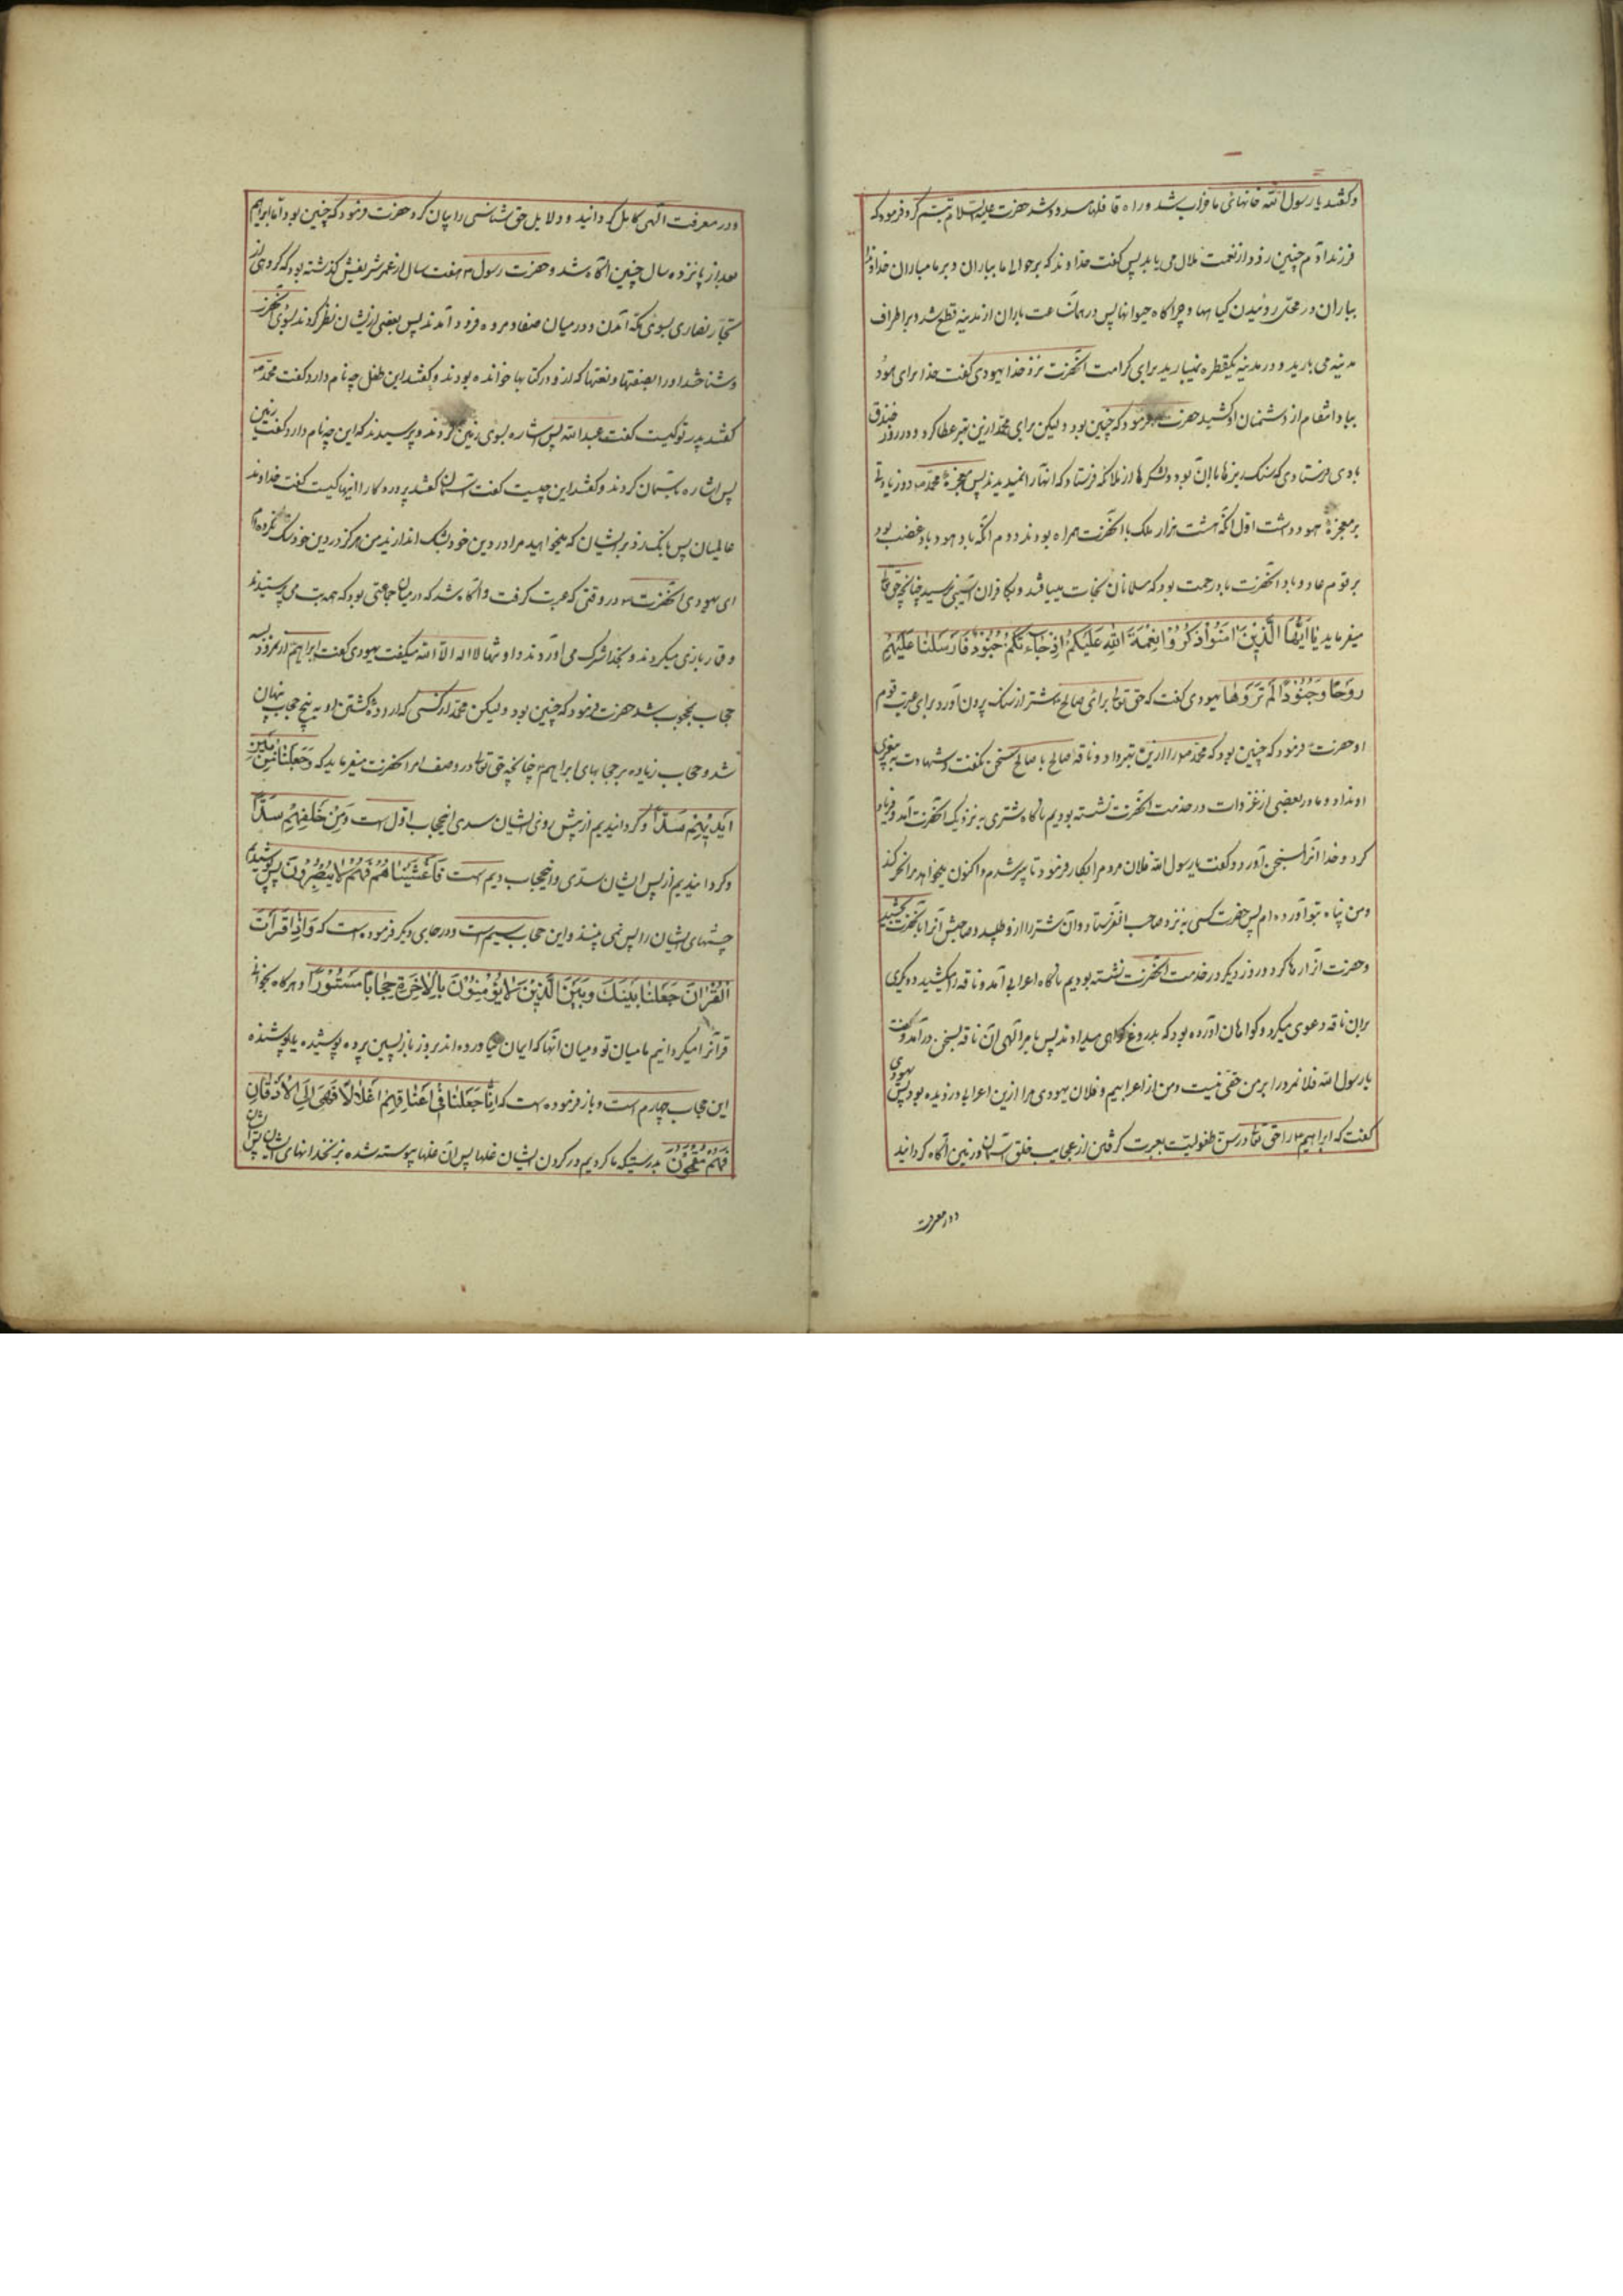 و گفتند یا رسول الله خانهای ما خراب شد و راه قافلها مسدود شد حضرت علیه السلام تبسم کرد و فرمود که
فرزند آدم چنین زود از نعمت ملال می یابد پس گفت خداوندا که بر حوالی ما بباران و بر ما مباران خداوندا
بباران در محل روئیدن گیاهها و چراگاه حیوانها پس در همان ساعت باران از مدینه قطع شد و بر اطراف
مدینه می بارید و در مدینه یکقطره نمیبارید برای کرامت آنحضرت نزد خدا یهودی گفت خدا برای هود
بباد انتقام از دشمنان او کشید حضرت فرمود که چنین بود و لیکن برای محمد ازین بهتر عطا کرد و در روز خندق
بادی فرستاد که سنک ریزها با آن بود و لشکرها از ملائکه فرستاد که آنها را نمیدیدند پس معجزهٔ محمد ص دو زیادتی
بر معجزهٔ هود داشت اول آنکه هشت هزار ملک با آنحضرت همراه بودند دوم آنکه باد هود باد غضب بود
بر قوم عاد و باد آنحضرت باد رحمت بود که مسلمانان نجات مییافتند و بکافران آسیبی نرسید چنانچه حق تعالی
میفرماید یا ایها الذین امنوا اذکروا نعمة الله علیکم اذ جاءتکم جنود فارسلنا علیهم
ریحا و جنودا لم تروها یهودی گفت که حق تعالی برای صالح شتر از سنک بیرون آورد برای عبرت قوم
او حضرت فرمود که چنین بود که محمد ص را ازین بهتر داد و ناقه صالح با صالح سخن نگفت و شهادت به پیغمبری
او نداد و ما در بعضی از غزوات در خدمت آنحضرت نشسته بودیم ناگاه شتری به نزدیک آنحضرت آمد و فریاد
کرد و خدا آنرا بسخن آورد و گفت یا رسول الله فلان مردم را بکار فرمود تا پیر شدم و اکنون میخواهد مرا نحر کند
و من پناه بتو آورده ام پس حضرت کسی به نزد صاحب او فرستاد و آن شتر را ازو طلبید و صاحبش آنرا بآنحضرت بخشید
و حضرت آنرا رها کرد و روز دیگر در خدمت آنحضرت نشسته بودیم ناگاه اعرابی آمد و ناقه را میکشید و دیگری
بران ناقه دعوی میکرد و گواهان آورده بود که بدروغ گواهی میدادند پس بامر الهی آن ناقه بسخن درآمد و گفت
یا رسول الله فلانمرد را بر من حقی نیست و من از اعرابیم و فلان یهودی مرا ازین اعرابی دزدیده بود پس یهودی
گفت که ابراهیم را حق تعالی در سن طفولیت بعبرت گرفتن از عجایب خلق آسمان و زمین آگاه گردانید
و در معرفت
و در معرفت الهی کامل گردانید و دلایل حق شناسی را بیان کرد حضرت فرمود که چنین بود اما ابراهیم
بعد از پانزده سال چنین آگاه شد و حضرت رسول ص هفت سال از عمر شریفش گذشته بود که گروهی از
تجار نصاری بسوی مکه آمدند و در میان صفا و مروه فرود آمدند پس بعضی از ایشان نظر کردند بسوی آنحضرت
و شناختند او را بصفتها و نعتها که از و در کتابها خوانده بودند و گفتند این طفل چه نام دارد گفت محمد ص
گفتند پدر تو کیست گفت عبدالله پس اشاره بسوی زمین کردند و پرسیدند که این چه نام دارد گفت زمین
پس اشاره بآسمان کردند و گفتند این چیست گفت آسمان گفتند پروردکار اینها کیست گفت خداوند
عالمیان پس بانک زد بر ایشان که میخواهید مرا در دین خود بشک اندازید من هرگز در دین خود شک نکرده ام
ای یهودی آنحضرت در وقتی که عبرت گرفت و آگاه شد که در میان جماعتی بود که همه بت می پرستیدند
و قمار بازی میکردند و بخدا شرک می آوردند و او تنها لا اله الا الله میگفت یهودی گفت ابراهیم از نمرود بسه
حجاب محجوب شد حضرت فرمود که چنین بود و لیکن محمد از کسی که اراده کشتن او به پنج حجاب پنهان
شد دو حجاب زیاده بر حجابهای ابراهیم چنانچه حق تعالی در وصف امر آنحضرت میفرماید که و جعلنا من بین
ایدیهم سدا و گردانیدیم از پیش روی ایشان سدی اینحجاب اول است و من خلفهم سدا
و گردانیدیم از پس ایشان سدی و اینحجاب دویم است فاغشیناهم فهم لا یبصرون پس پوشیدیم
چشمهای ایشان را پس نمی بینند و این حجاب سیم است و در جای دیگر فرموده است که و اذا قرات
القران جعلنا بینک و بین الذین لا یؤمنون بالاخرة حجابا مستورا و هرگاه بخوانی
قرآنرا میگردانیم ما میان تو و میان آنها که ایمان نیاورده اند بروز بازپسین پرده پوشیده یا پوشنده
این حجاب چهارم است و باز فرموده است که انا جعلنا فی اعناقهم اغلالا فهی الی الاذقان
فهم مقمحون بدرستیکه ما کردیم در گردن ایشان غلها پس آن غلها پیوسته شده بز نخدانهای ایشان پس ایشان